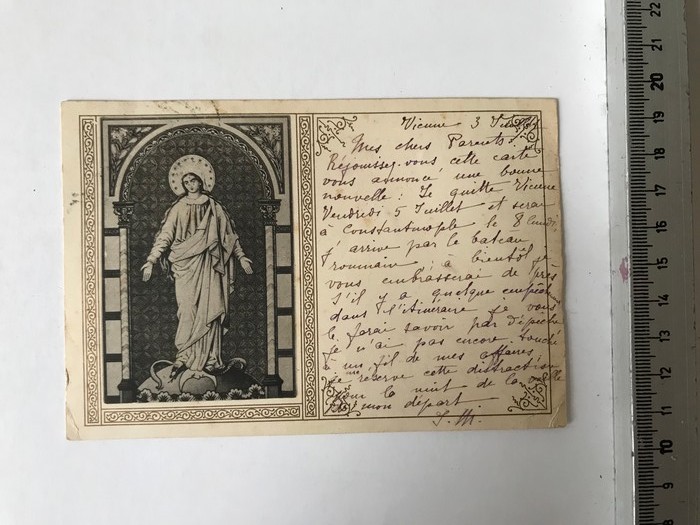 Vienne 3 Juillet
Mes chers Parents
Réjouissez-vous cette carte
vous annonce une bonne
nouvelle : Je quitte Vienne
Vendredi 5 Juillet et serai
à Constantinople le 8 lundi,
J'arrive par le bateau
roumain ; à bientôt je
vous embrasserai de près
S'il y a quelque empêchement
dans l'itinéraire je vous
le ferai savoir par dépêche
Je n'ai pas encore touché
à un fil de mes affaires,
je me réserve cette distraction
pour la nuit de la veille
de mon départ
22
21
20
19
18
17
16
15
14
13
12
11
10
9
8